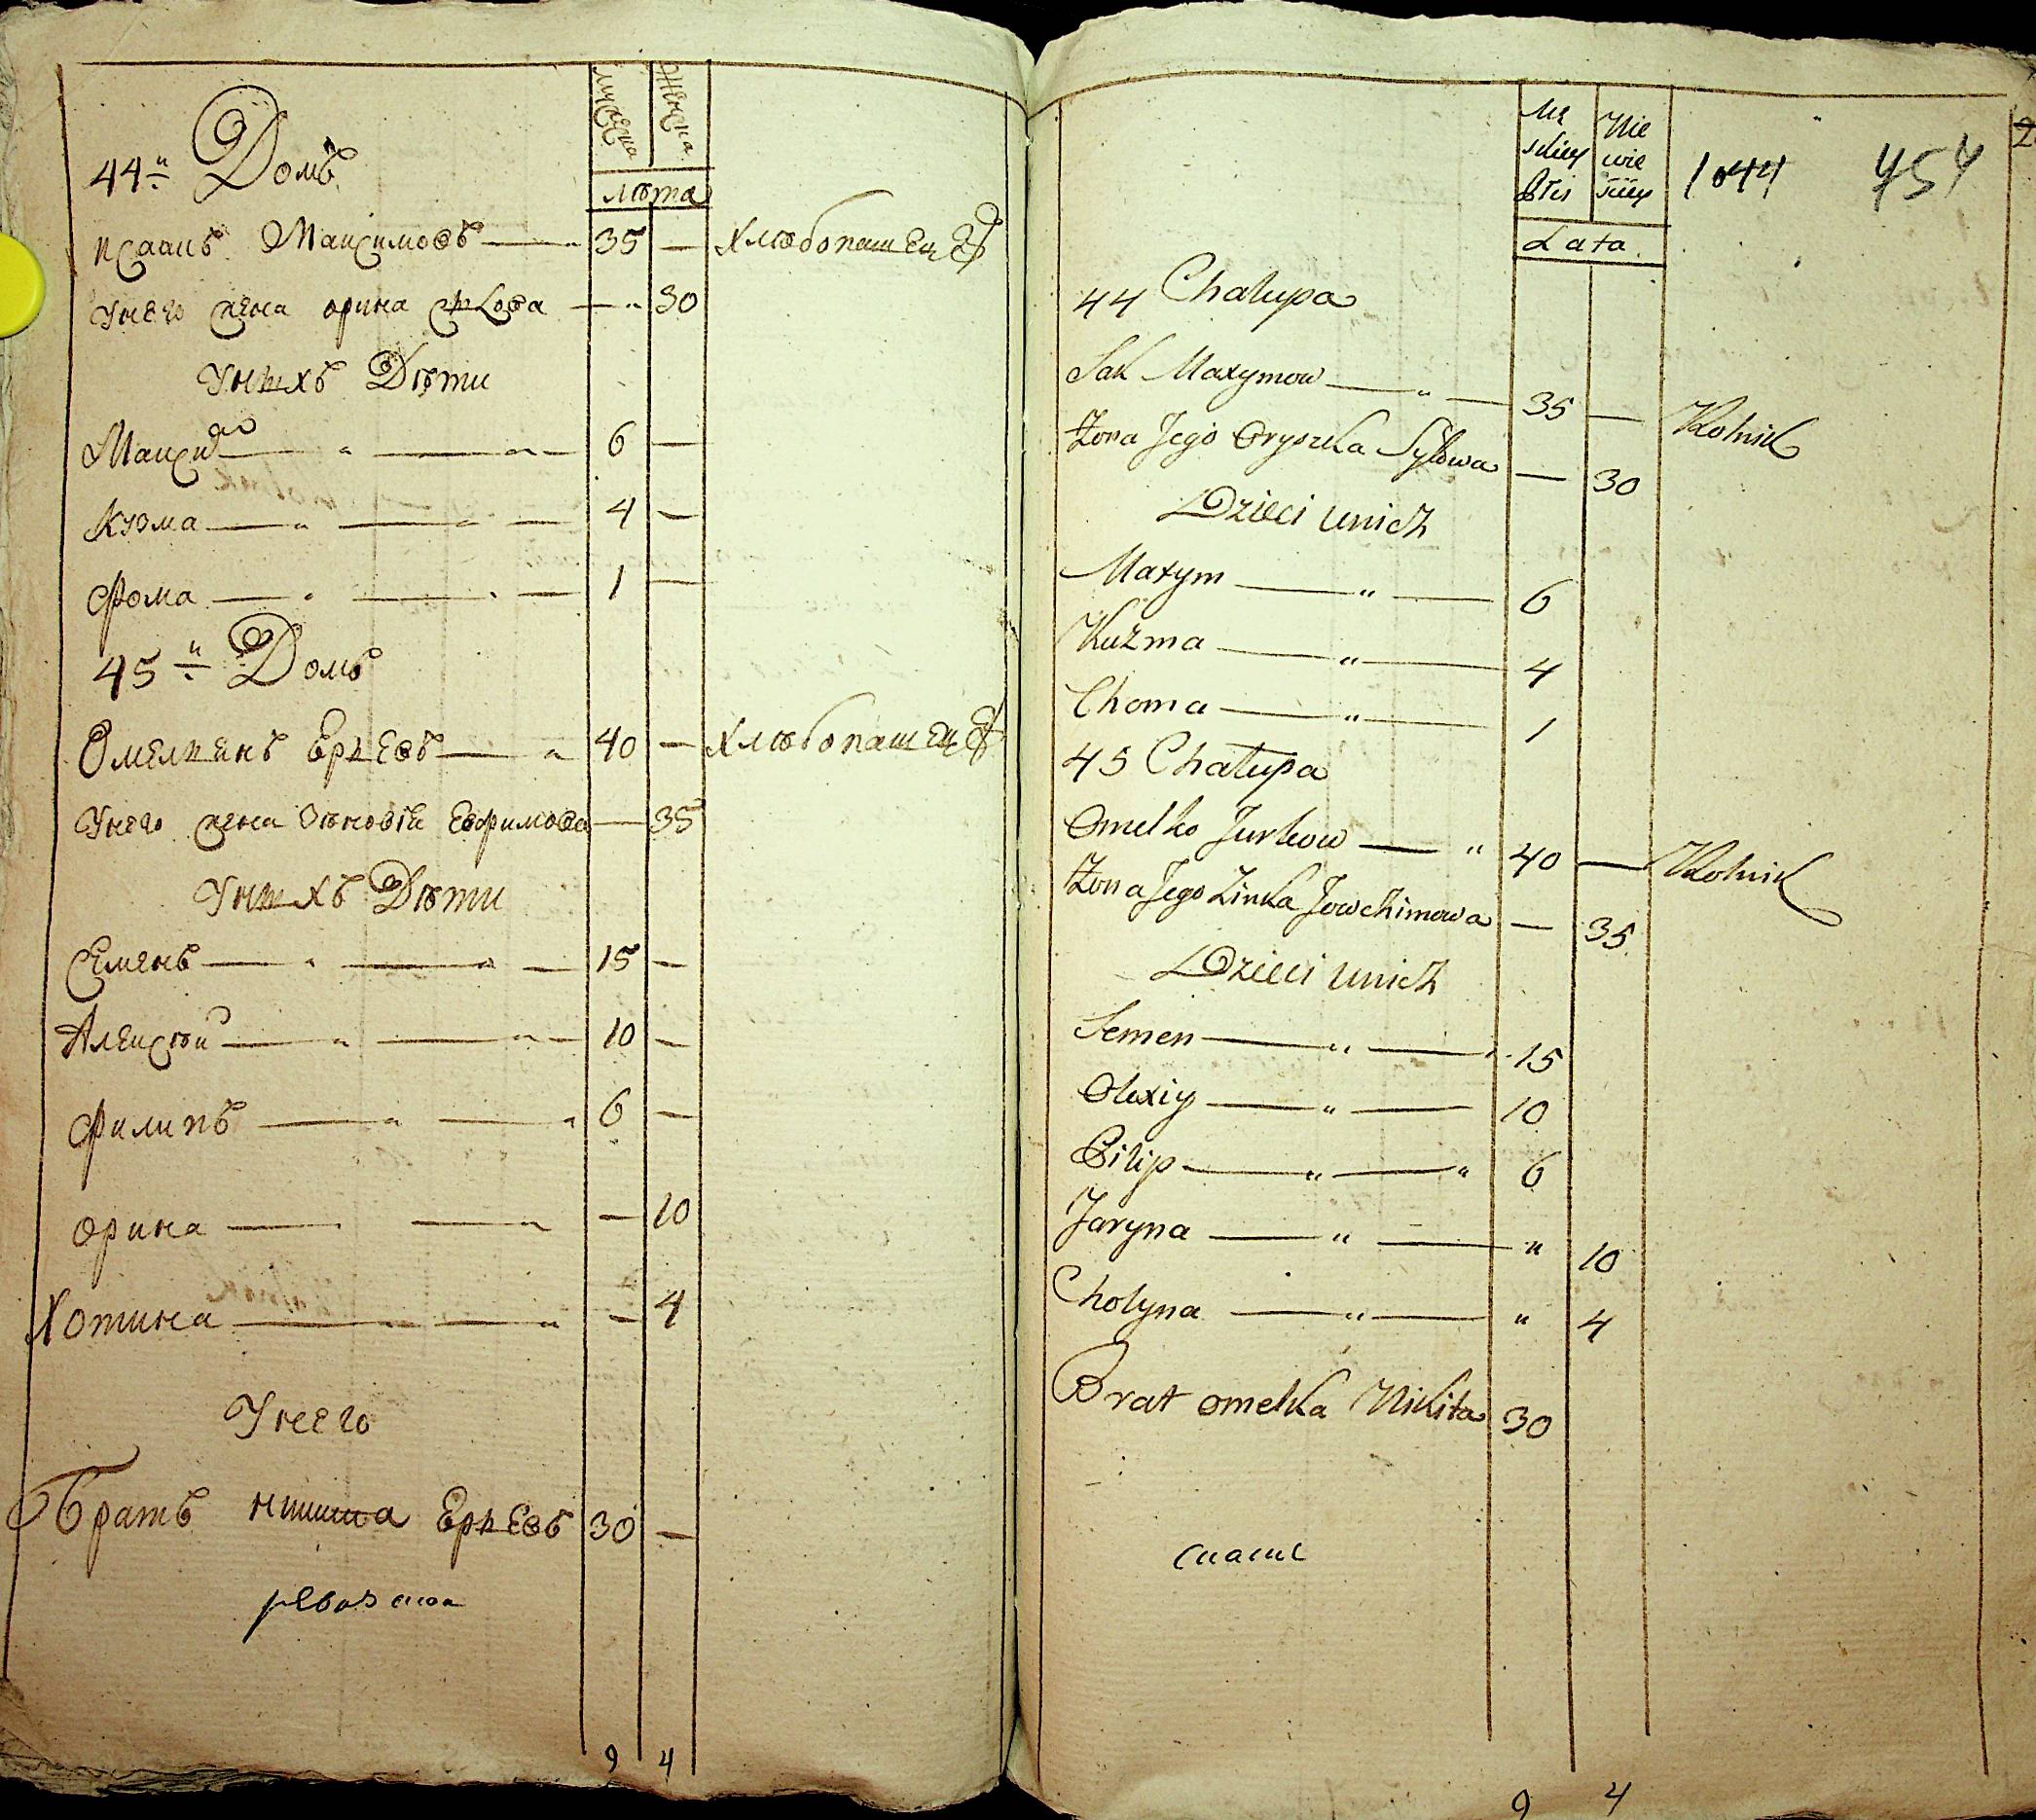 мужеска
женска
лѣта
44й Домъ
Исаакъ Максимовъ 35 — хлѣбопашецъ
Унего жена орина — 30
Унихъ Дѣти
Максимъ 6 —
Кузма 4 —
Фома 1 —
45й Домъ
Омелкенъ Еркевъ 40 — хлѣбопашецъ
Унего жена Зѣновія Евфимова — 35
Унихъ Дѣти
Семенъ 15 —
Алексѣй 10 —
Филипъ 6 —
орина — 10
Хотина — 4
Унего
Братъ никита Еркевъ 30 —
9 4
Mę skiey Płci
Nie wieściey
Lata
1044 454
44 Chalupa
Sak Maxymow 35 — Rolnik
Żona Jego Oryszka Syłowa — 30
Dzieci unich
Maxym 6
Kuźma 4
Choma 1
45 Chalupa
Omelko Jurkow 40 — Rolnik
Żona Jego Zinka Jowchimowa — 35
Dzieci unich
Semen 15
Olexiy 10
Pilip 6
Jaryna 10
Chotyna 4
Brat omelka Nikita 30
9 4